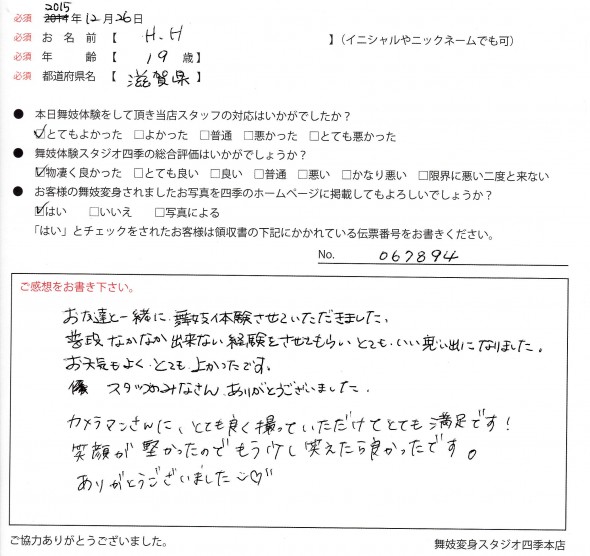 2015
必須 2014年12月26日
必須 お 名 前 【 H.H 】(イニシャルやニックネームでも可)
必須 年 齢 【 19 歳】
必須 都道府県名 【 滋賀県 】
● 本日舞妓体験をして頂き当店スタッフの対応はいかがでしたか？
☑とてもよかった □よかった □普通 □悪かった □とても悪かった
● 舞妓体験スタジオ四季の総合評価はいかがでしょうか？
☑物凄く良かった □とても良い □良い □普通 □悪い □かなり悪い □限界に悪い二度と来ない
● お客様の舞妓変身されましたお写真を四季のホームページに掲載してもよろしいでしょうか？
☑はい □いいえ □写真による
「はい」とチェックをされたお客様は領収書の下記にかかれている伝票番号をお書きください。
No. 067894
ご感想をお書き下さい。
お友達と一緒に舞妓体験させていただきました。
普段なかなか出来ない経験をさせてもらいとてもいい思い出になりました。
お天気もよくとても上かったです。
スタッフのみなさんありがとうございました。
カメラマンさんに、とても良く撮っていただけてとても満足です！
笑顔が堅かったのでもう少し笑えたら良かったです。
ありがとうございました♡
ご協力ありがとうございました。
舞妓変身スタジオ四季本店